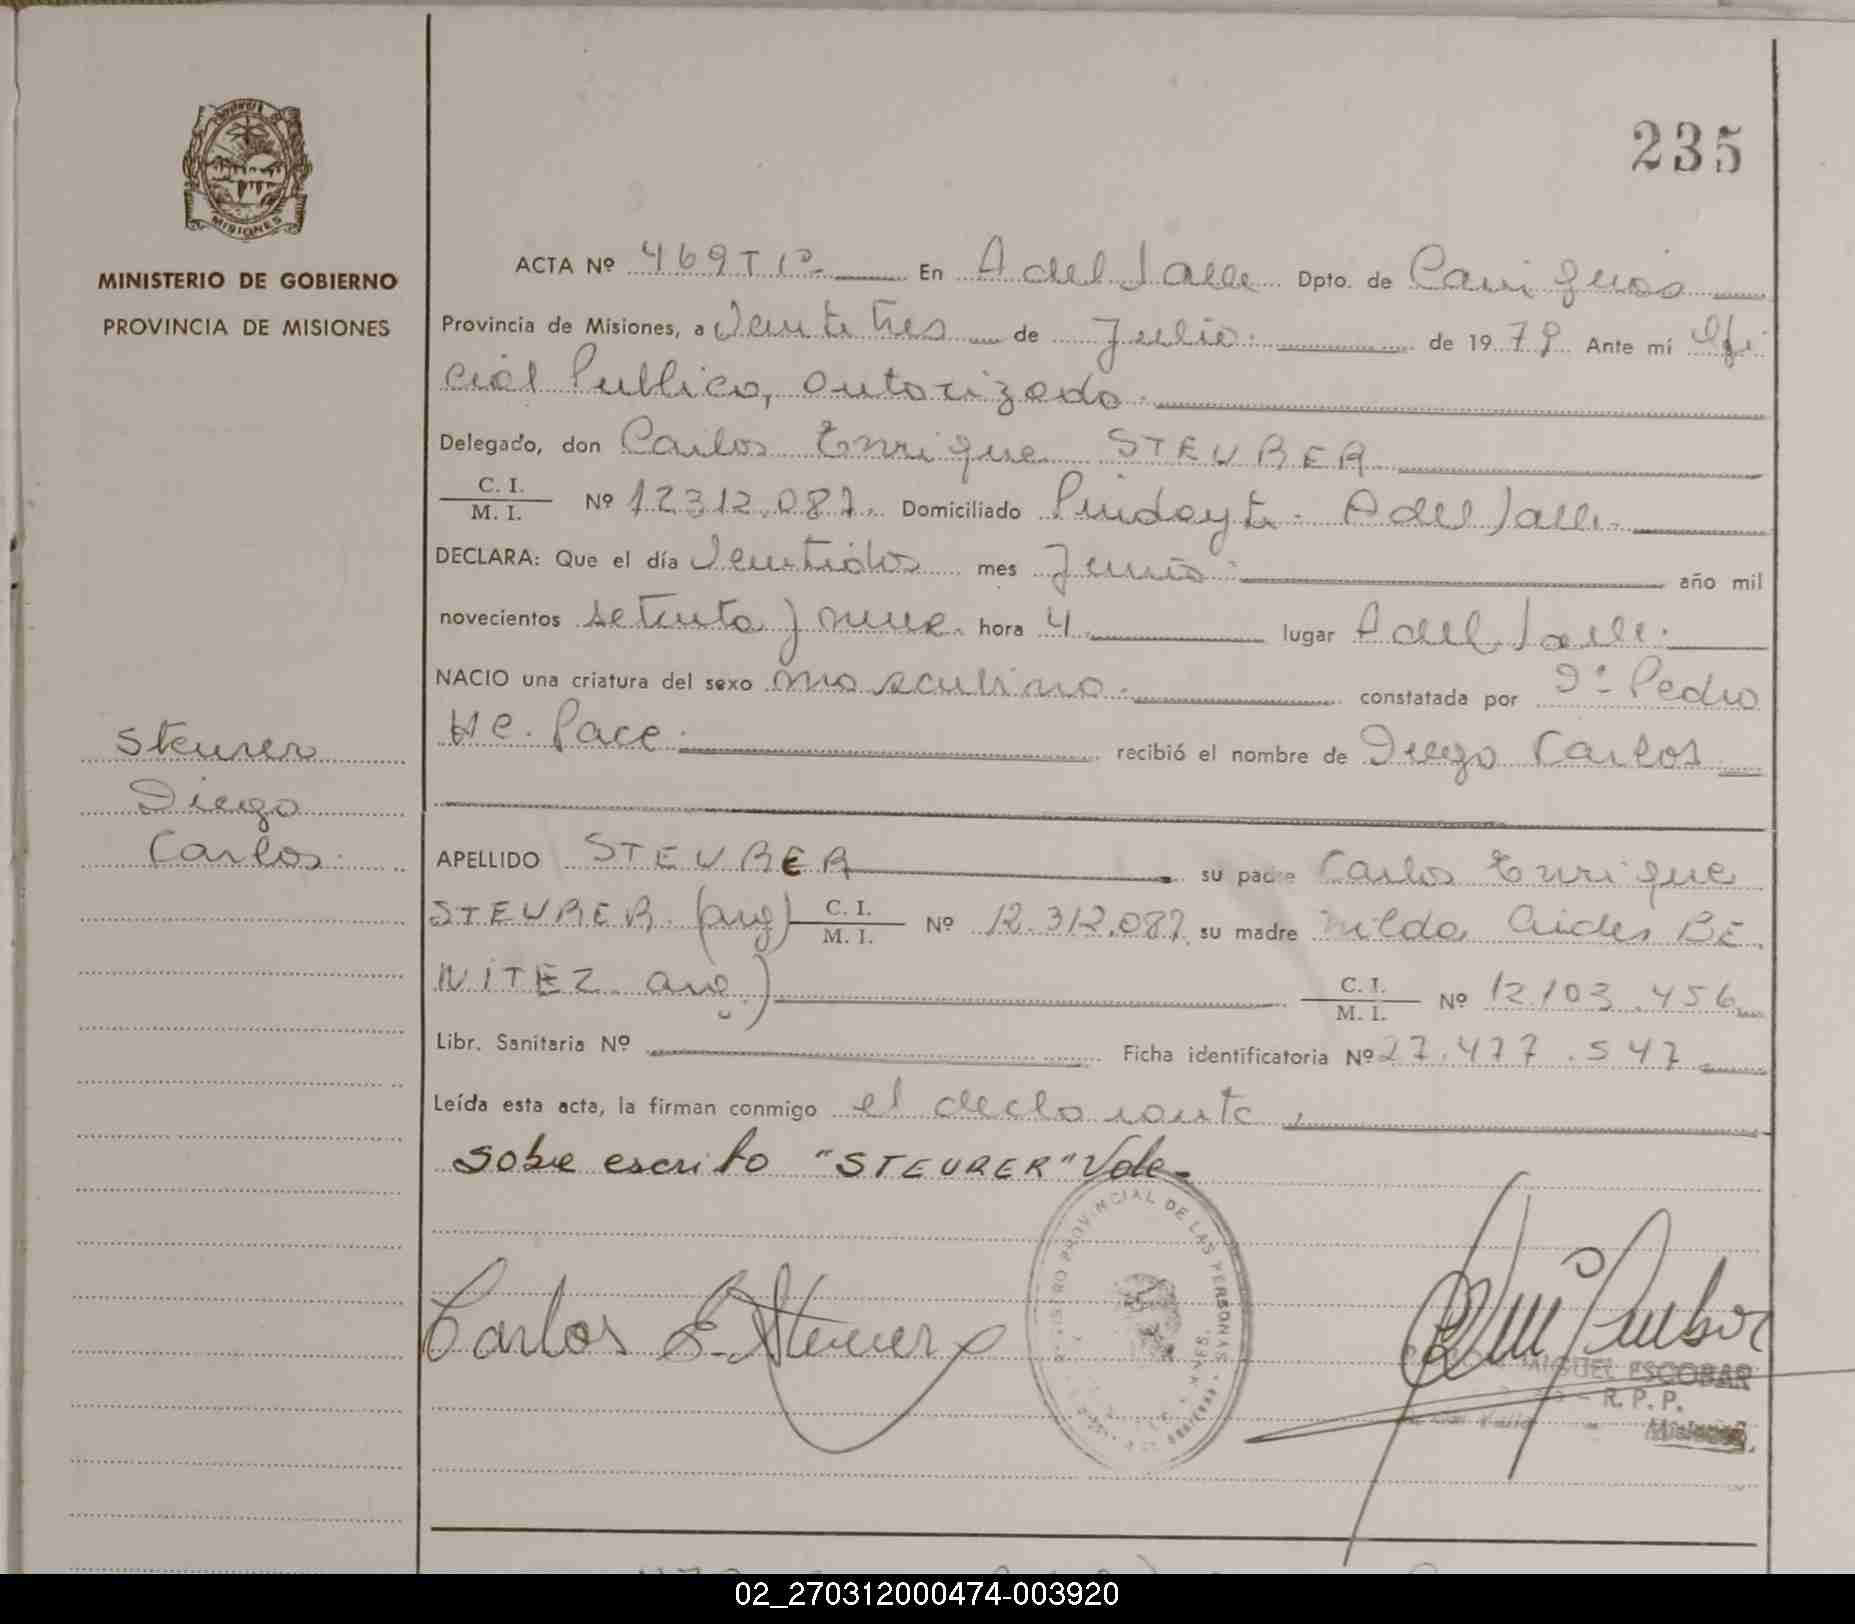 235
MISIONES
MINISTERIO DE GOBIERNO
PROVINCIA DE MISIONES
ACTA Nº 469 T 1º En A del Valle Dpto. de Cainguás
Provincia de Misiones, a Veintitres de Julio de 1979 Ante mí Ofi
cial Publico, autorizado
Delegado, don Carlos Enrique STEURER
C. I.
M. I. Nº 12312.087 Domiciliado Pindayti - A del Valle
DECLARA: Que el día Veintidos mes Junio año mil
novecientos setenta y nueve hora 4 lugar A del Valle
NACIO una criatura del sexo masculino constatada por Dr Pedro
Mc. Pace recibió el nombre de Diego Carlos
Steurer
Diego
Carlos
APELLIDO STEURER su padre Carlos Enrique
STEURER (arg) C. I.
M. I. Nº 12.312.087 su madre Nilda Aides BE
NITEZ arg.) C. I.
M. I. Nº 12.103.456
Libr. Sanitaria Nº Ficha identificatoria Nº 27.477.547
Leída esta acta, la firman conmigo el declarante,
Sobre escrito "STEURER" Vale-
REGISTRO PROVINCIAL DE LAS PERSONAS
Carlos E. Steurer
MIGUEL ESCOBAR
R. P. P.
del Valle - Misiones
02_270312000474-003920